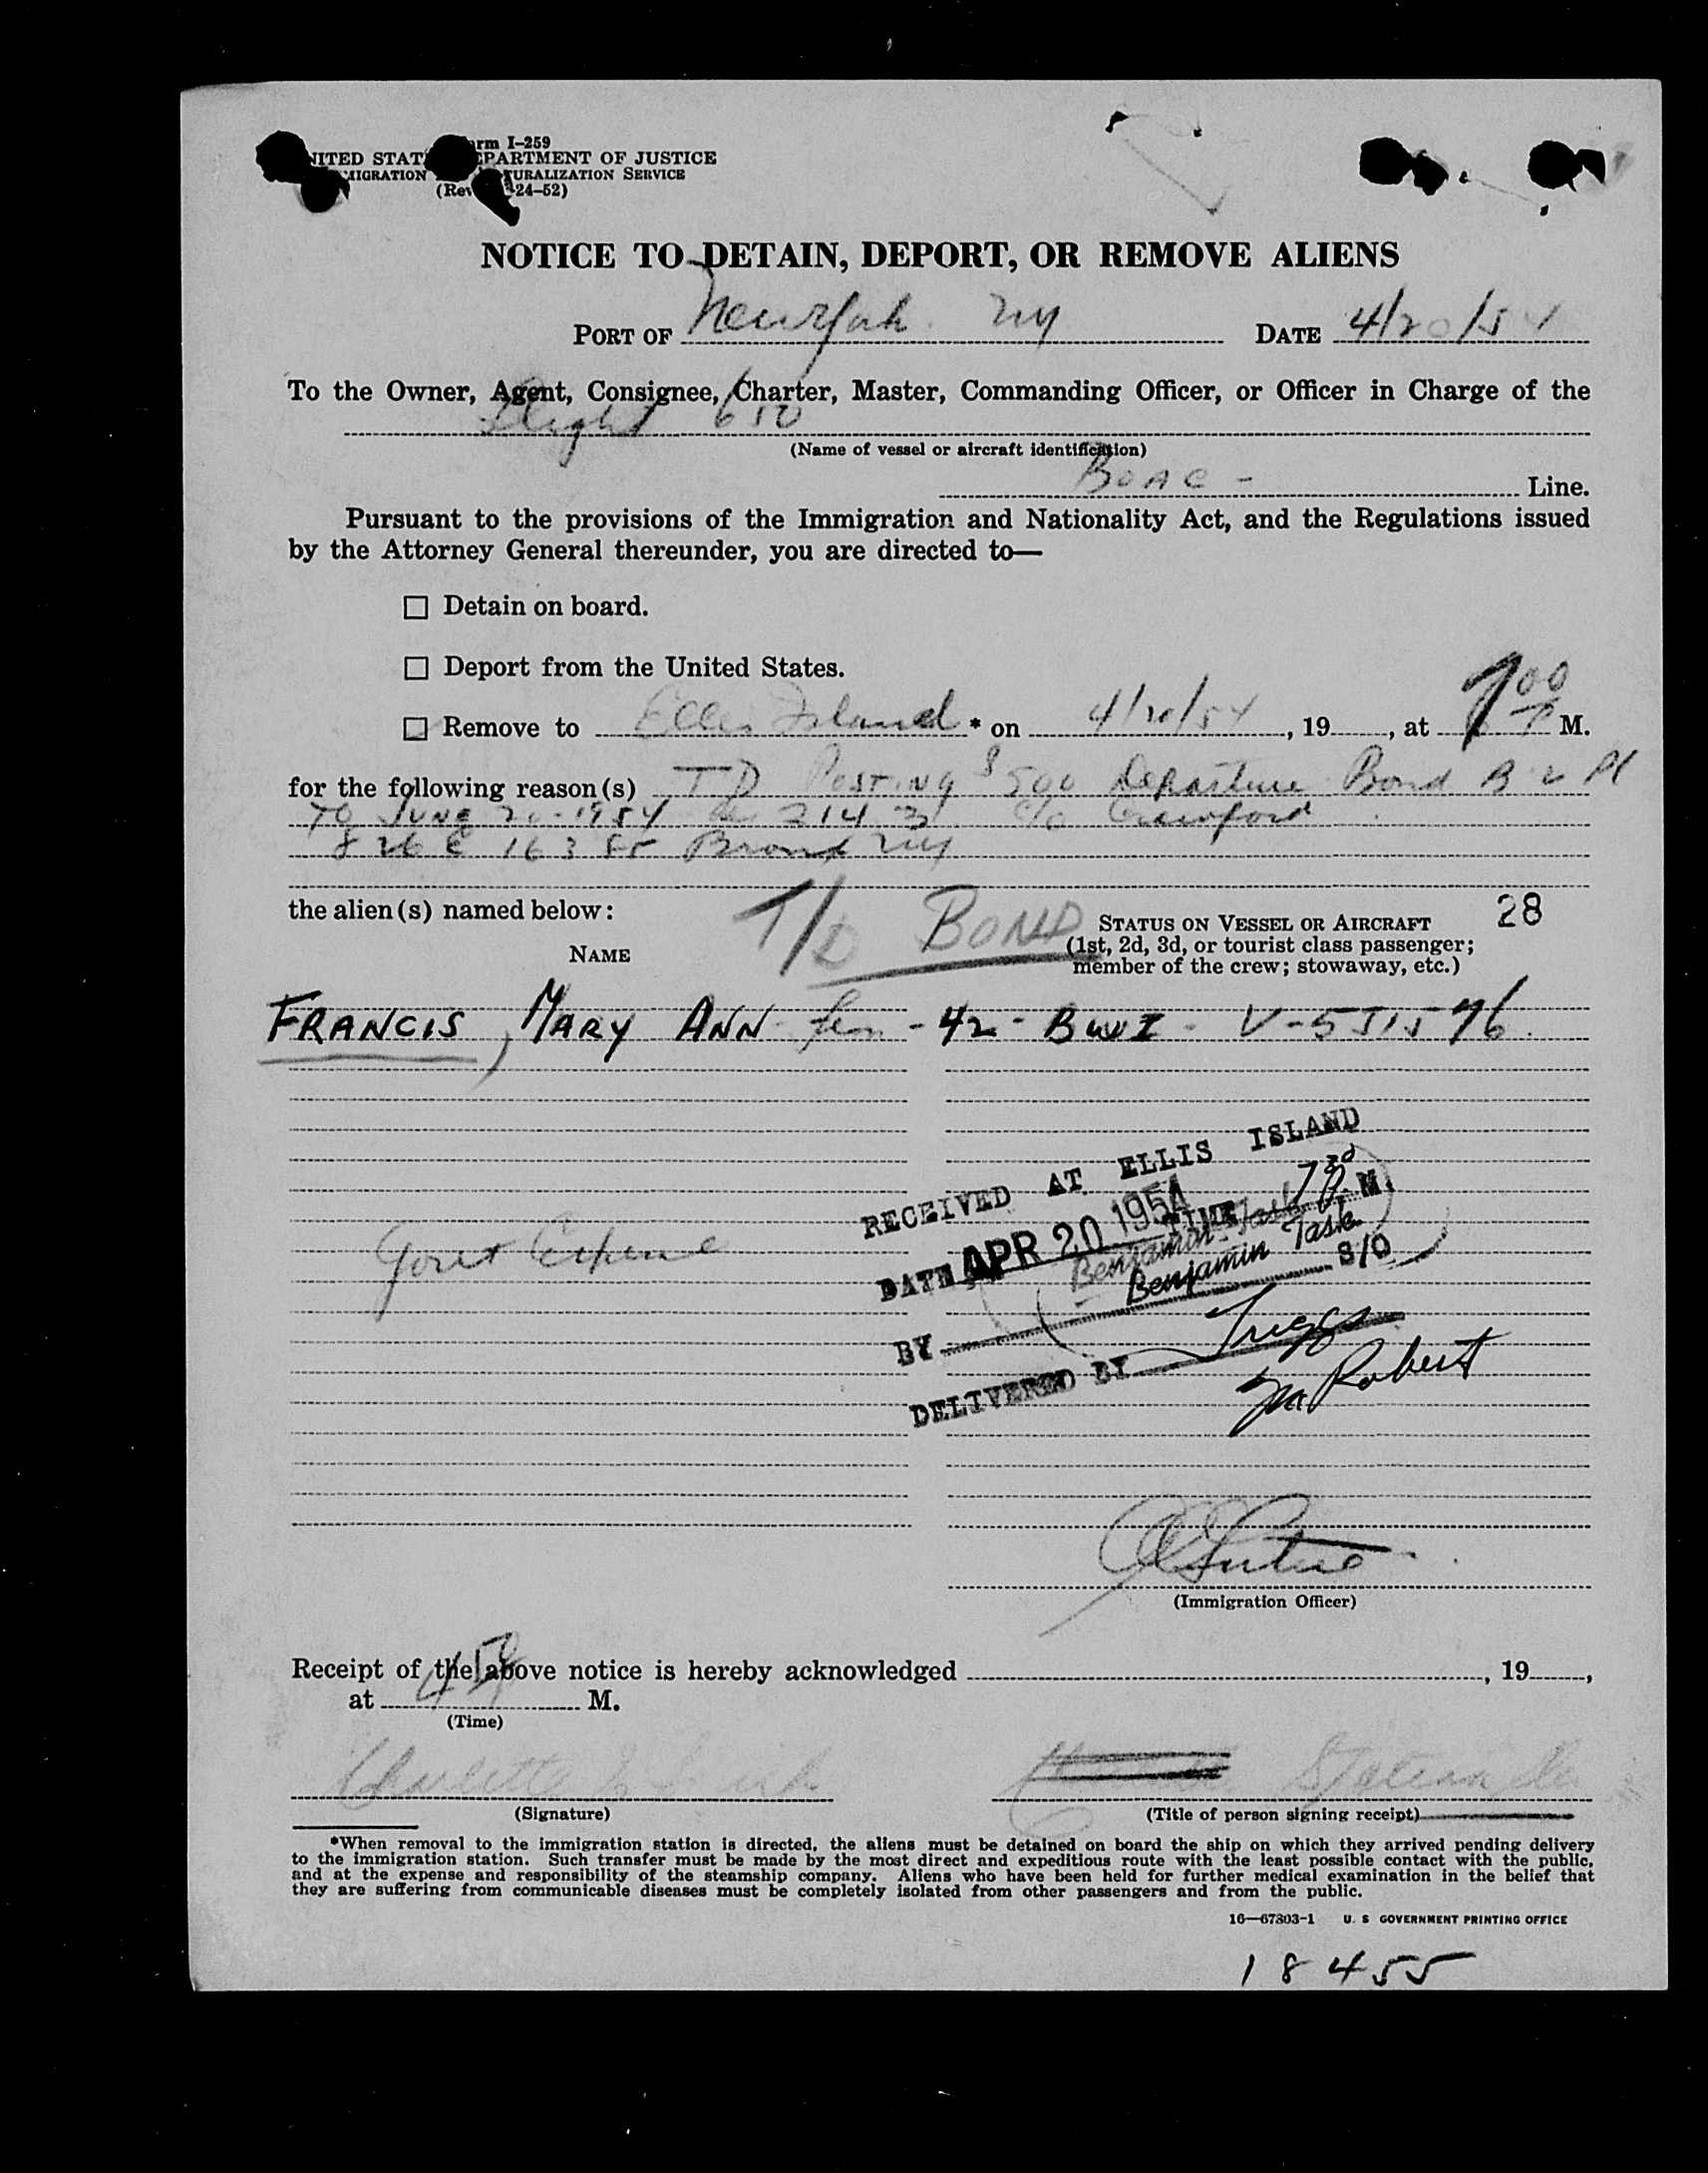 rm I-259
NITED STAT EPARTMENT OF JUSTICE
MIGRATION URALIZATION SERVICE
(Rev 24-52)
NOTICE TO DETAIN, DEPORT, OR REMOVE ALIENS
PORT OF New York NY DATE 4/20/54
To the Owner, Agent, Consignee, Charter, Master, Commanding Officer, or Officer in Charge of the
Flight 650
(Name of vessel or aircraft identification)
BOAC - Line.
Pursuant to the provisions of the Immigration and Nationality Act, and the Regulations issued
by the Attorney General thereunder, you are directed to—
☐ Detain on board.
☐ Deport from the United States.
☐ Remove to Ellis Island * on 4/20/54, 19, at 7 00 P M.
for the following reason(s) T D Posting $500 Departure Bond B 2 Pl
TO JUNE 20-1954 214 3 c/o Crawford
826 E 163 St Bronx NY
the alien(s) named below:
T/D BOND
28
STATUS ON VESSEL OR AIRCRAFT
(1st, 2d, 3d, or tourist class passenger;
member of the crew; stowaway, etc.)
NAME
FRANCIS, MARY ANN - fem - 42 - BWI - V-551576
RECEIVED AT ELLIS ISLAND
DATE APR 20 1954 TIME 7 30 P. M.
Benjamin Task
Benjamin Task
BY S/O
Govt Expense
DELIVERED BY Triggs
Robert
(Immigration Officer)
Receipt of the above notice is hereby acknowledged , 19 ,
at M.
(Time)
(Signature) (Title of person signing receipt)
*When removal to the immigration station is directed, the aliens must be detained on board the ship on which they arrived pending delivery
to the immigration station. Such transfer must be made by the most direct and expeditious route with the least possible contact with the public,
and at the expense and responsibility of the steamship company. Aliens who have been held for further medical examination in the belief that
they are suffering from communicable diseases must be completely isolated from other passengers and from the public.
16—67303-1 U. S GOVERNMENT PRINTING OFFICE
18455